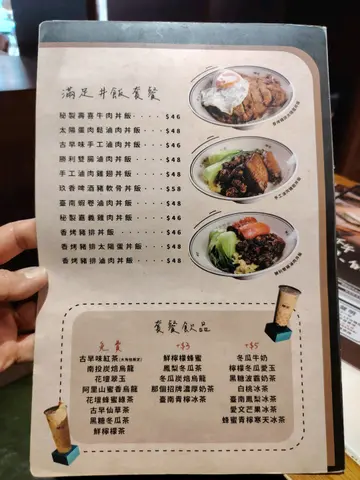 滿足丼飯套餐
秘製壽喜牛肉丼飯 ···· $46
太陽蛋肉鬆滷肉丼飯 ··· $48
古早味手工滷肉丼飯 ··· $46
勝利雙腸滷肉丼飯 ···· $48
手工滷肉雞翅丼飯 ···· $48
玖香啤酒豬軟骨丼飯 ··· $58
臺南蝦卷滷肉丼飯 ···· $48
秘製嘉義雞肉丼飯 ···· $46
香烤豬排丼飯 ······ $46
香烤豬排太陽蛋丼飯 ··· $48
香烤豬排滷肉丼飯 ···· $48
套餐飲品
免費
古早味紅茶
南投炭焙烏龍
花壇翠玉
阿里山蜜香烏龍
花壇蜂蜜綠茶
古早仙草茶
黑糖冬瓜茶
鮮檸檬茶
+$3
鮮檸檬蜂蜜
鳳梨冬瓜茶
冬瓜炭焙烏龍
那個招牌濃厚奶茶
臺南青檸冰茶
+$5
冬瓜牛奶
檸檬冬瓜愛玉
黑糖波霸奶茶
白桃冰茶
臺南鳳梨冰茶
愛文芒果冰茶
蜂蜜青檸寒天冰茶